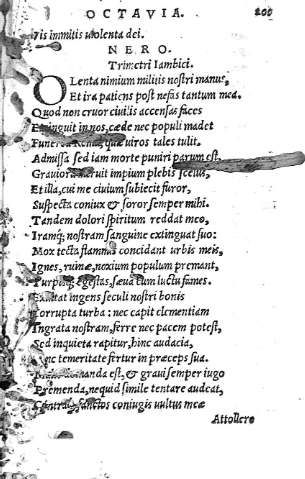 OCTAVIA. 200
Vis immitis uiolenta dei.
NERO.
Trimetri Iambici.
O Lenta nimium militis nostri manus,
Et ira patiens post nefas tantum mea.
Quod non cruor ciuilis accensas faces
Extinguit in nos, cæde nec populi madet
Funerea Roma, quæ uiros tales tulit.
Admissa sed iam morte puniri parum est,
Grauiora meruit impium plebis scelus,
Et illa, cui me ciuium subiecit furor,
Suspecta coniux & soror semper mihi.
Tandem dolori spiritum reddat meo,
Iramq; nostram sanguine extinguat suo:
Mox tecta flammis concidant urbis meis,
Ignes, ruinæ, noxium populum premant,
Turpisq; egestas, sæua cum luctu fames.
Exultat ingens seculi nostri bonis
Corrupta turba: nec capit clementiam
Ingrata nostram, ferre nec pacem potest,
Sed inquieta rapitur, hinc audacia,
Hinc temeritate fertur in præceps sua.
domanda est, & graui semper iugo
Premenda, nequid simile tentare audeat,
Contraq; sanctos coniugis uultus meæ
Attollere